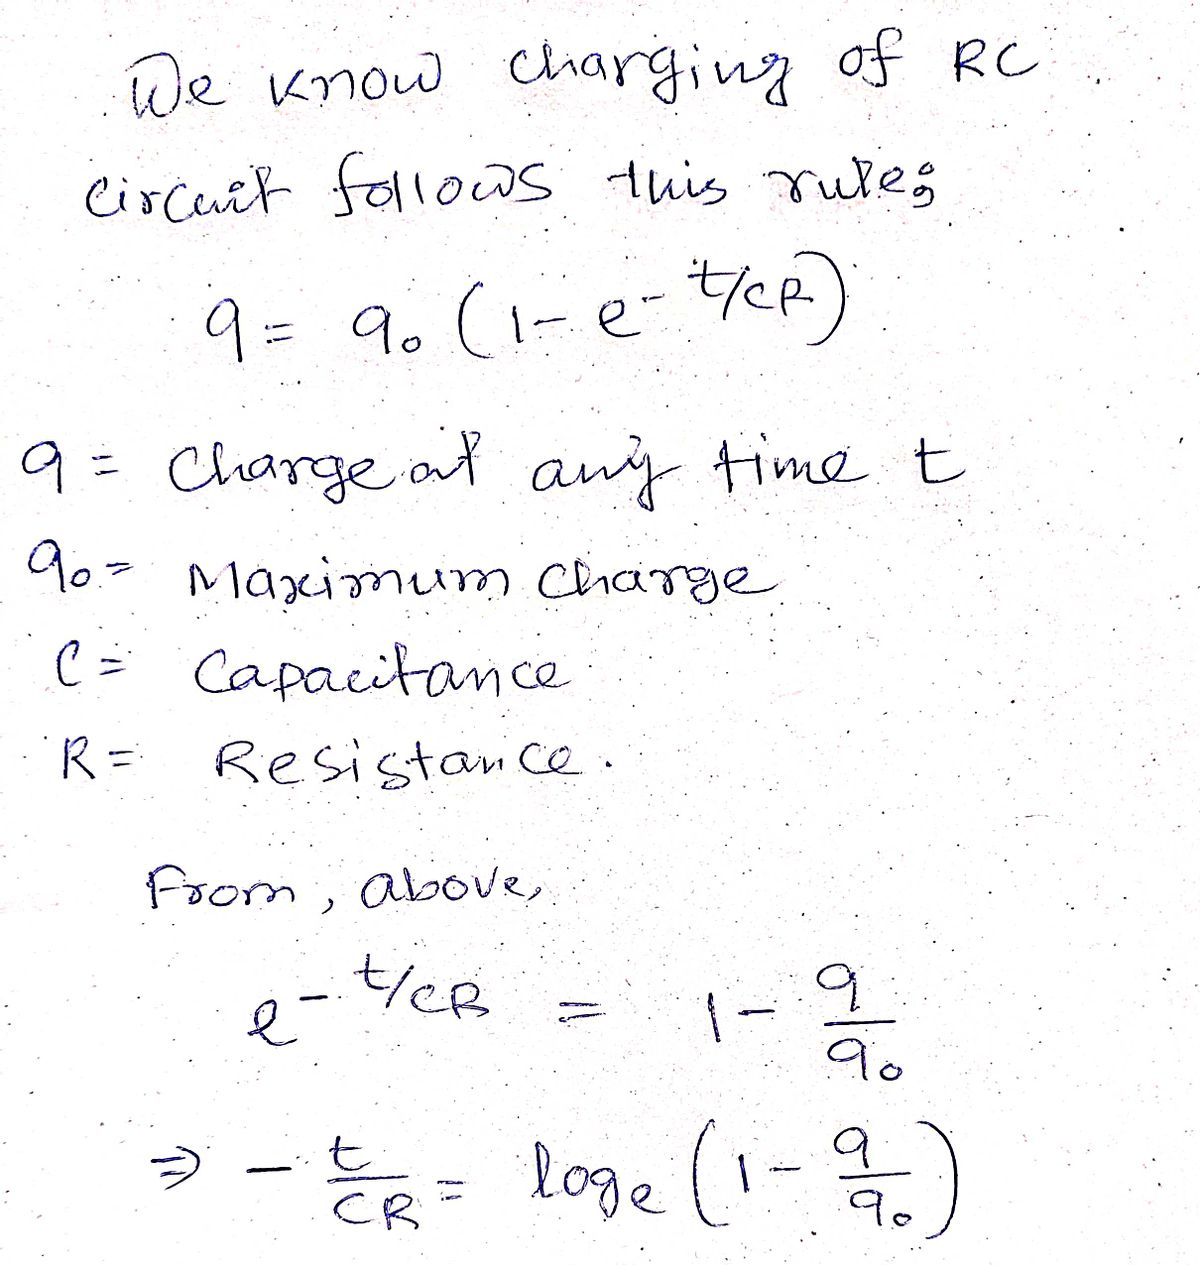 We know charging of RC
circuit follows this rule;
q = q₀ (1 - e^{-t/CR})
q = Charge at any time t
q₀ = Maximum charge
C = Capacitance
R = Resistance.
From, above,
e^{-t/CR} = 1 - q/q₀
⇒ - t/CR = logₑ (1 - q/q₀)